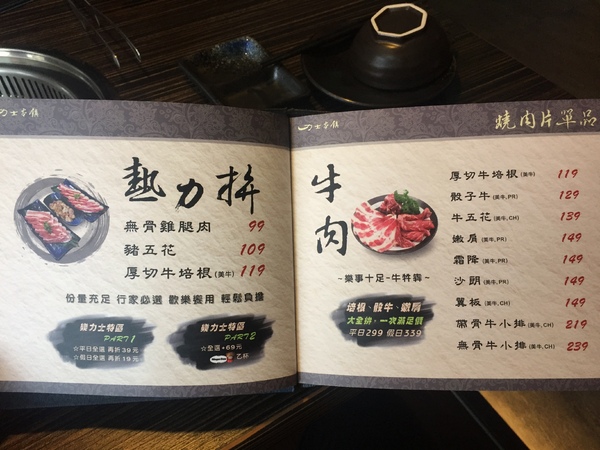 力士本燒
熱力拚
無骨雞腿肉 99
豬五花 109
厚切牛培根(美牛) 119
份量充足 行家必選 歡樂饗用 輕鬆負擔
燒力士特區
PART1
☆平日全區 再折39元
☆假日全區 再折19元
燒力士特區
PART2
☆全區+69元
乙杯
力士本燒
燒肉片單品
牛肉
~樂事十足-牛犇犇~
培根、骰牛、嫩肩
大全拼、一次滿足價
平日299 假日339
厚切牛培根(美牛) 119
骰子牛(美牛,PR) 129
牛五花(美牛,CH) 139
嫩肩(美牛,PR) 149
霜降(美牛,PR) 149
沙朗(美牛,PR) 149
翼板(美牛,CH) 149
帶骨牛小排(美牛,CH) 219
無骨牛小排(美牛,CH) 239